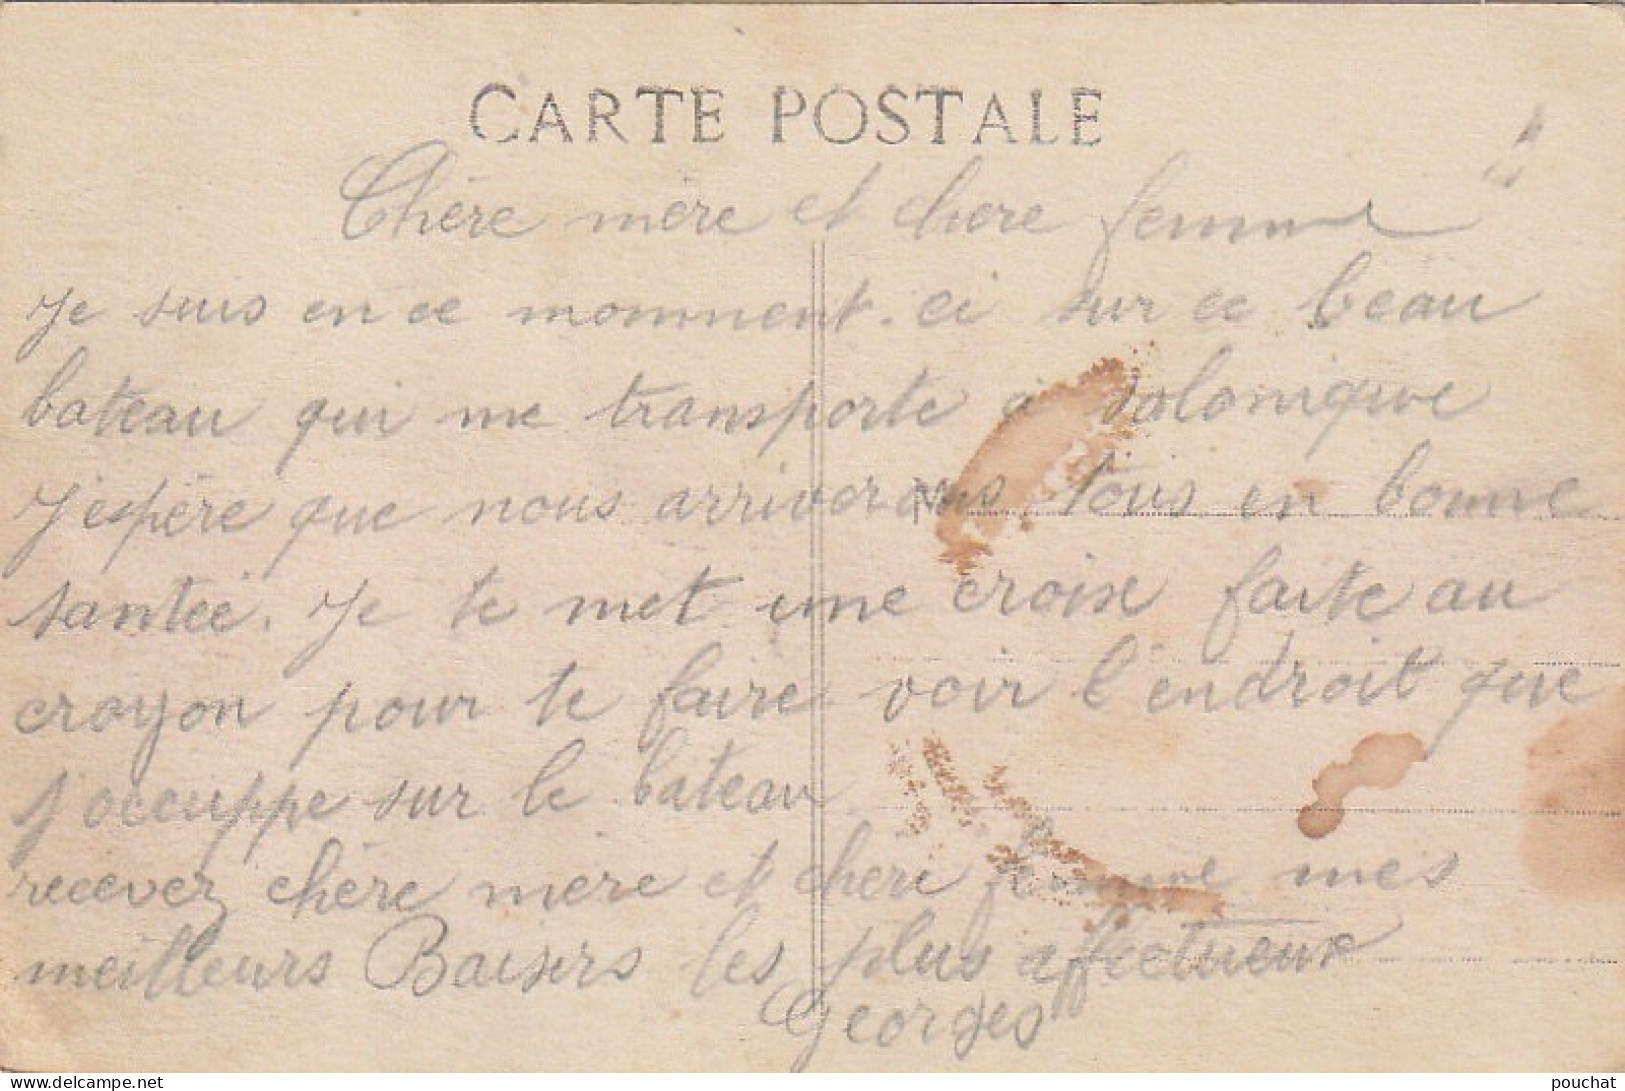 CARTE POSTALE
Chère mère et chere femme
Je suis en ce momment. ci sur ce beau
bateau qui me transporte a salonique
J'espère que nous arriverons tous en bonne
santée. Je te met une croix faite au
crayon pour te faire voir l'endroit que
j'occuppe sur le bateau
recevez chère mere et cheri femme mes
meilleurs Baisers les plus affectueux
Georges
www.delcampe.net
pouchat